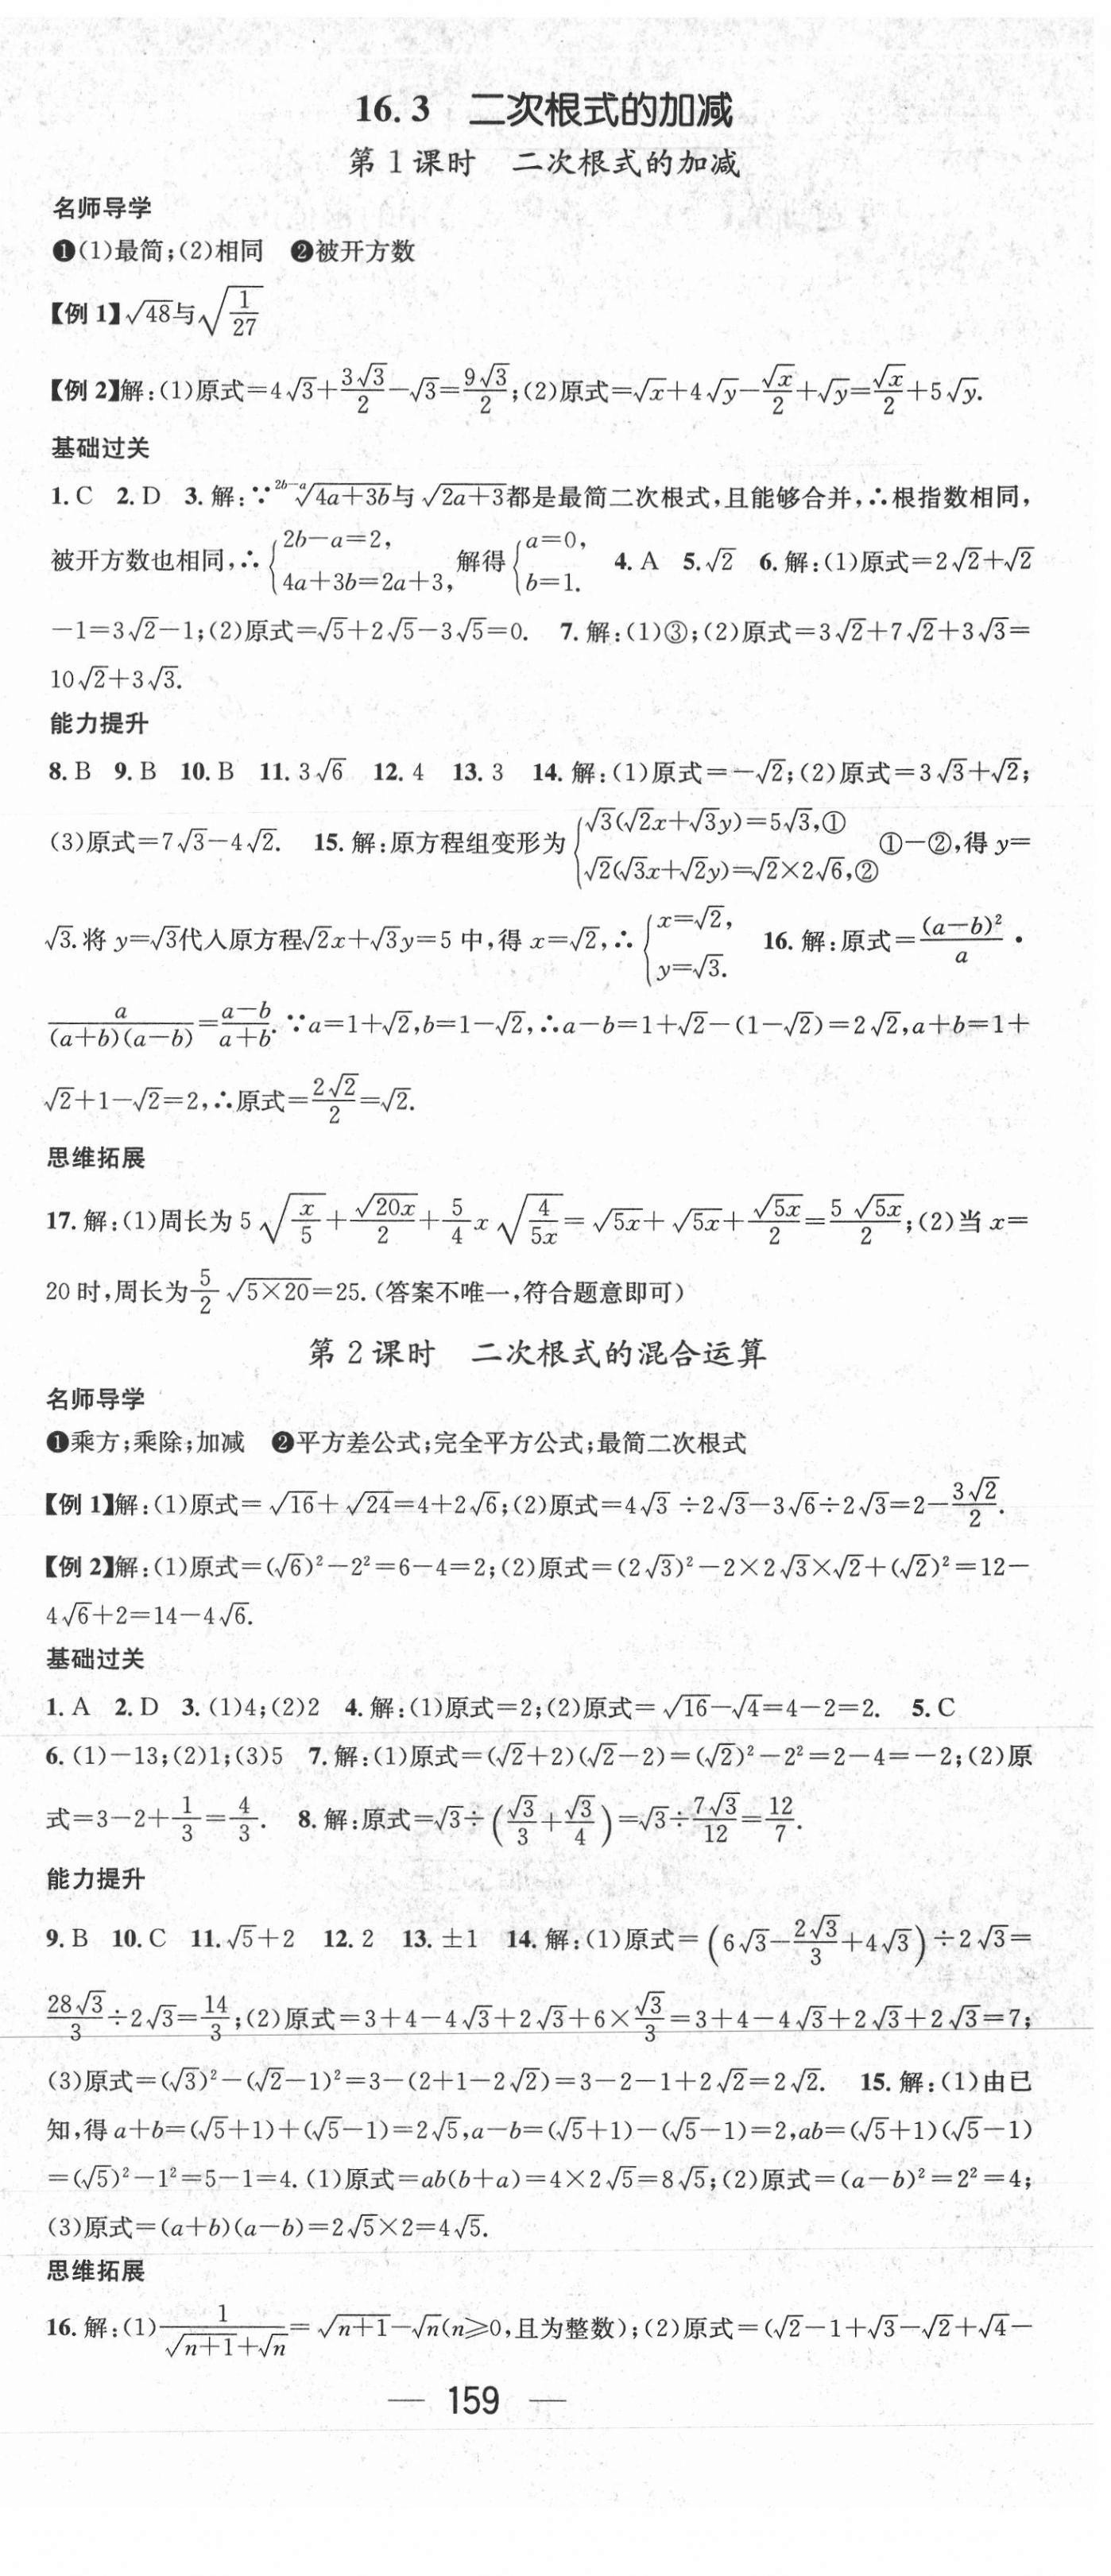 16.3 二次根式的加减
第1课时 二次根式的加减
名师导学
❶(1)最简;(2)相同 ❷被开方数
【例1】√48与√(1/27)
【例2】解:(1)原式=4√3+3√3/2-√3=9√3/2;(2)原式=√x+4√y-√x/2+√y=√x/2+5√y.
基础过关
1.C 2.D 3.解:∵ ^(2b-a)√(4a+3b)与√(2a+3)都是最简二次根式,且能够合并,∴根指数相同,
被开方数也相同,∴{2b-a=2, 4a+3b=2a+3, 解得{a=0, b=1. 4.A 5.√2 6.解:(1)原式=2√2+√2
-1=3√2-1;(2)原式=√5+2√5-3√5=0. 7.解:(1)③;(2)原式=3√2+7√2+3√3=
10√2+3√3.
能力提升
8.B 9.B 10.B 11.3√6 12.4 13.3 14.解:(1)原式=-√2;(2)原式=3√3+√2;
(3)原式=7√3-4√2. 15.解:原方程组变形为{√3(√2x+√3y)=5√3,① √2(√3x+√2y)=√2×2√6,② ①-②,得y=
√3.将y=√3代入原方程√2x+√3y=5中,得x=√2,∴{x=√2, y=√3. 16.解:原式=(a-b)²/a·
a/((a+b)(a-b))=(a-b)/(a+b).∵a=1+√2,b=1-√2,∴a-b=1+√2-(1-√2)=2√2,a+b=1+
√2+1-√2=2,∴原式=2√2/2=√2.
思维拓展
17.解:(1)周长为5√(x/5)+√(20x)/2+5/4x√(4/(5x))=√(5x)+√(5x)+√(5x)/2=5√(5x)/2;(2)当x=
20时,周长为5/2√(5×20)=25.(答案不唯一,符合题意即可)
第2课时 二次根式的混合运算
名师导学
❶乘方;乘除;加减 ❷平方差公式;完全平方公式;最简二次根式
【例1】解:(1)原式=√16+√24=4+2√6;(2)原式=4√3÷2√3-3√6÷2√3=2-3√2/2.
【例2】解:(1)原式=(√6)²-2²=6-4=2;(2)原式=(2√3)²-2×2√3×√2+(√2)²=12-
4√6+2=14-4√6.
基础过关
1.A 2.D 3.(1)4;(2)2 4.解:(1)原式=2;(2)原式=√16-√4=4-2=2. 5.C
6.(1)-13;(2)1;(3)5 7.解:(1)原式=(√2+2)(√2-2)=(√2)²-2²=2-4=-2;(2)原
式=3-2+1/3=4/3. 8.解:原式=√3÷(√3/3+√3/4)=√3÷7√3/12=12/7.
能力提升
9.B 10.C 11.√5+2 12.2 13.±1 14.解:(1)原式=(6√3-2√3/3+4√3)÷2√3=
28√3/3÷2√3=14/3;(2)原式=3+4-4√3+2√3+6×√3/3=3+4-4√3+2√3+2√3=7;
(3)原式=(√3)²-(√2-1)²=3-(2+1-2√2)=3-2-1+2√2=2√2. 15.解:(1)由已
知,得a+b=(√5+1)+(√5-1)=2√5,a-b=(√5+1)-(√5-1)=2,ab=(√5+1)(√5-1)
=(√5)²-1²=5-1=4.(1)原式=ab(b+a)=4×2√5=8√5;(2)原式=(a-b)²=2²=4;
(3)原式=(a+b)(a-b)=2√5×2=4√5.
思维拓展
16.解:(1)1/(√(n+1)+√n)=√(n+1)-√n(n≥0,且为整数);(2)原式=(√2-1+√3-√2+√4-
— 159 —